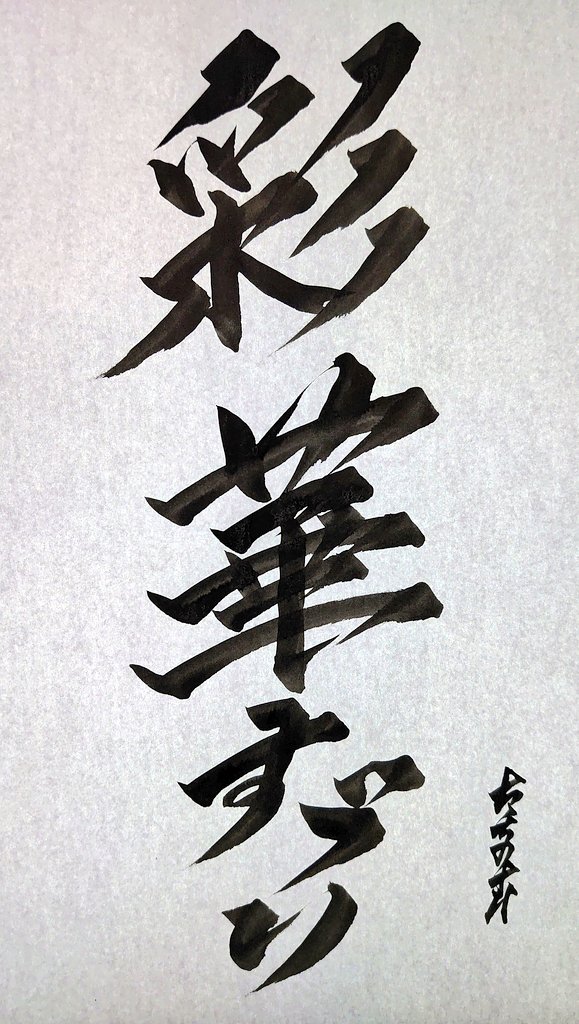 彩華すゞり